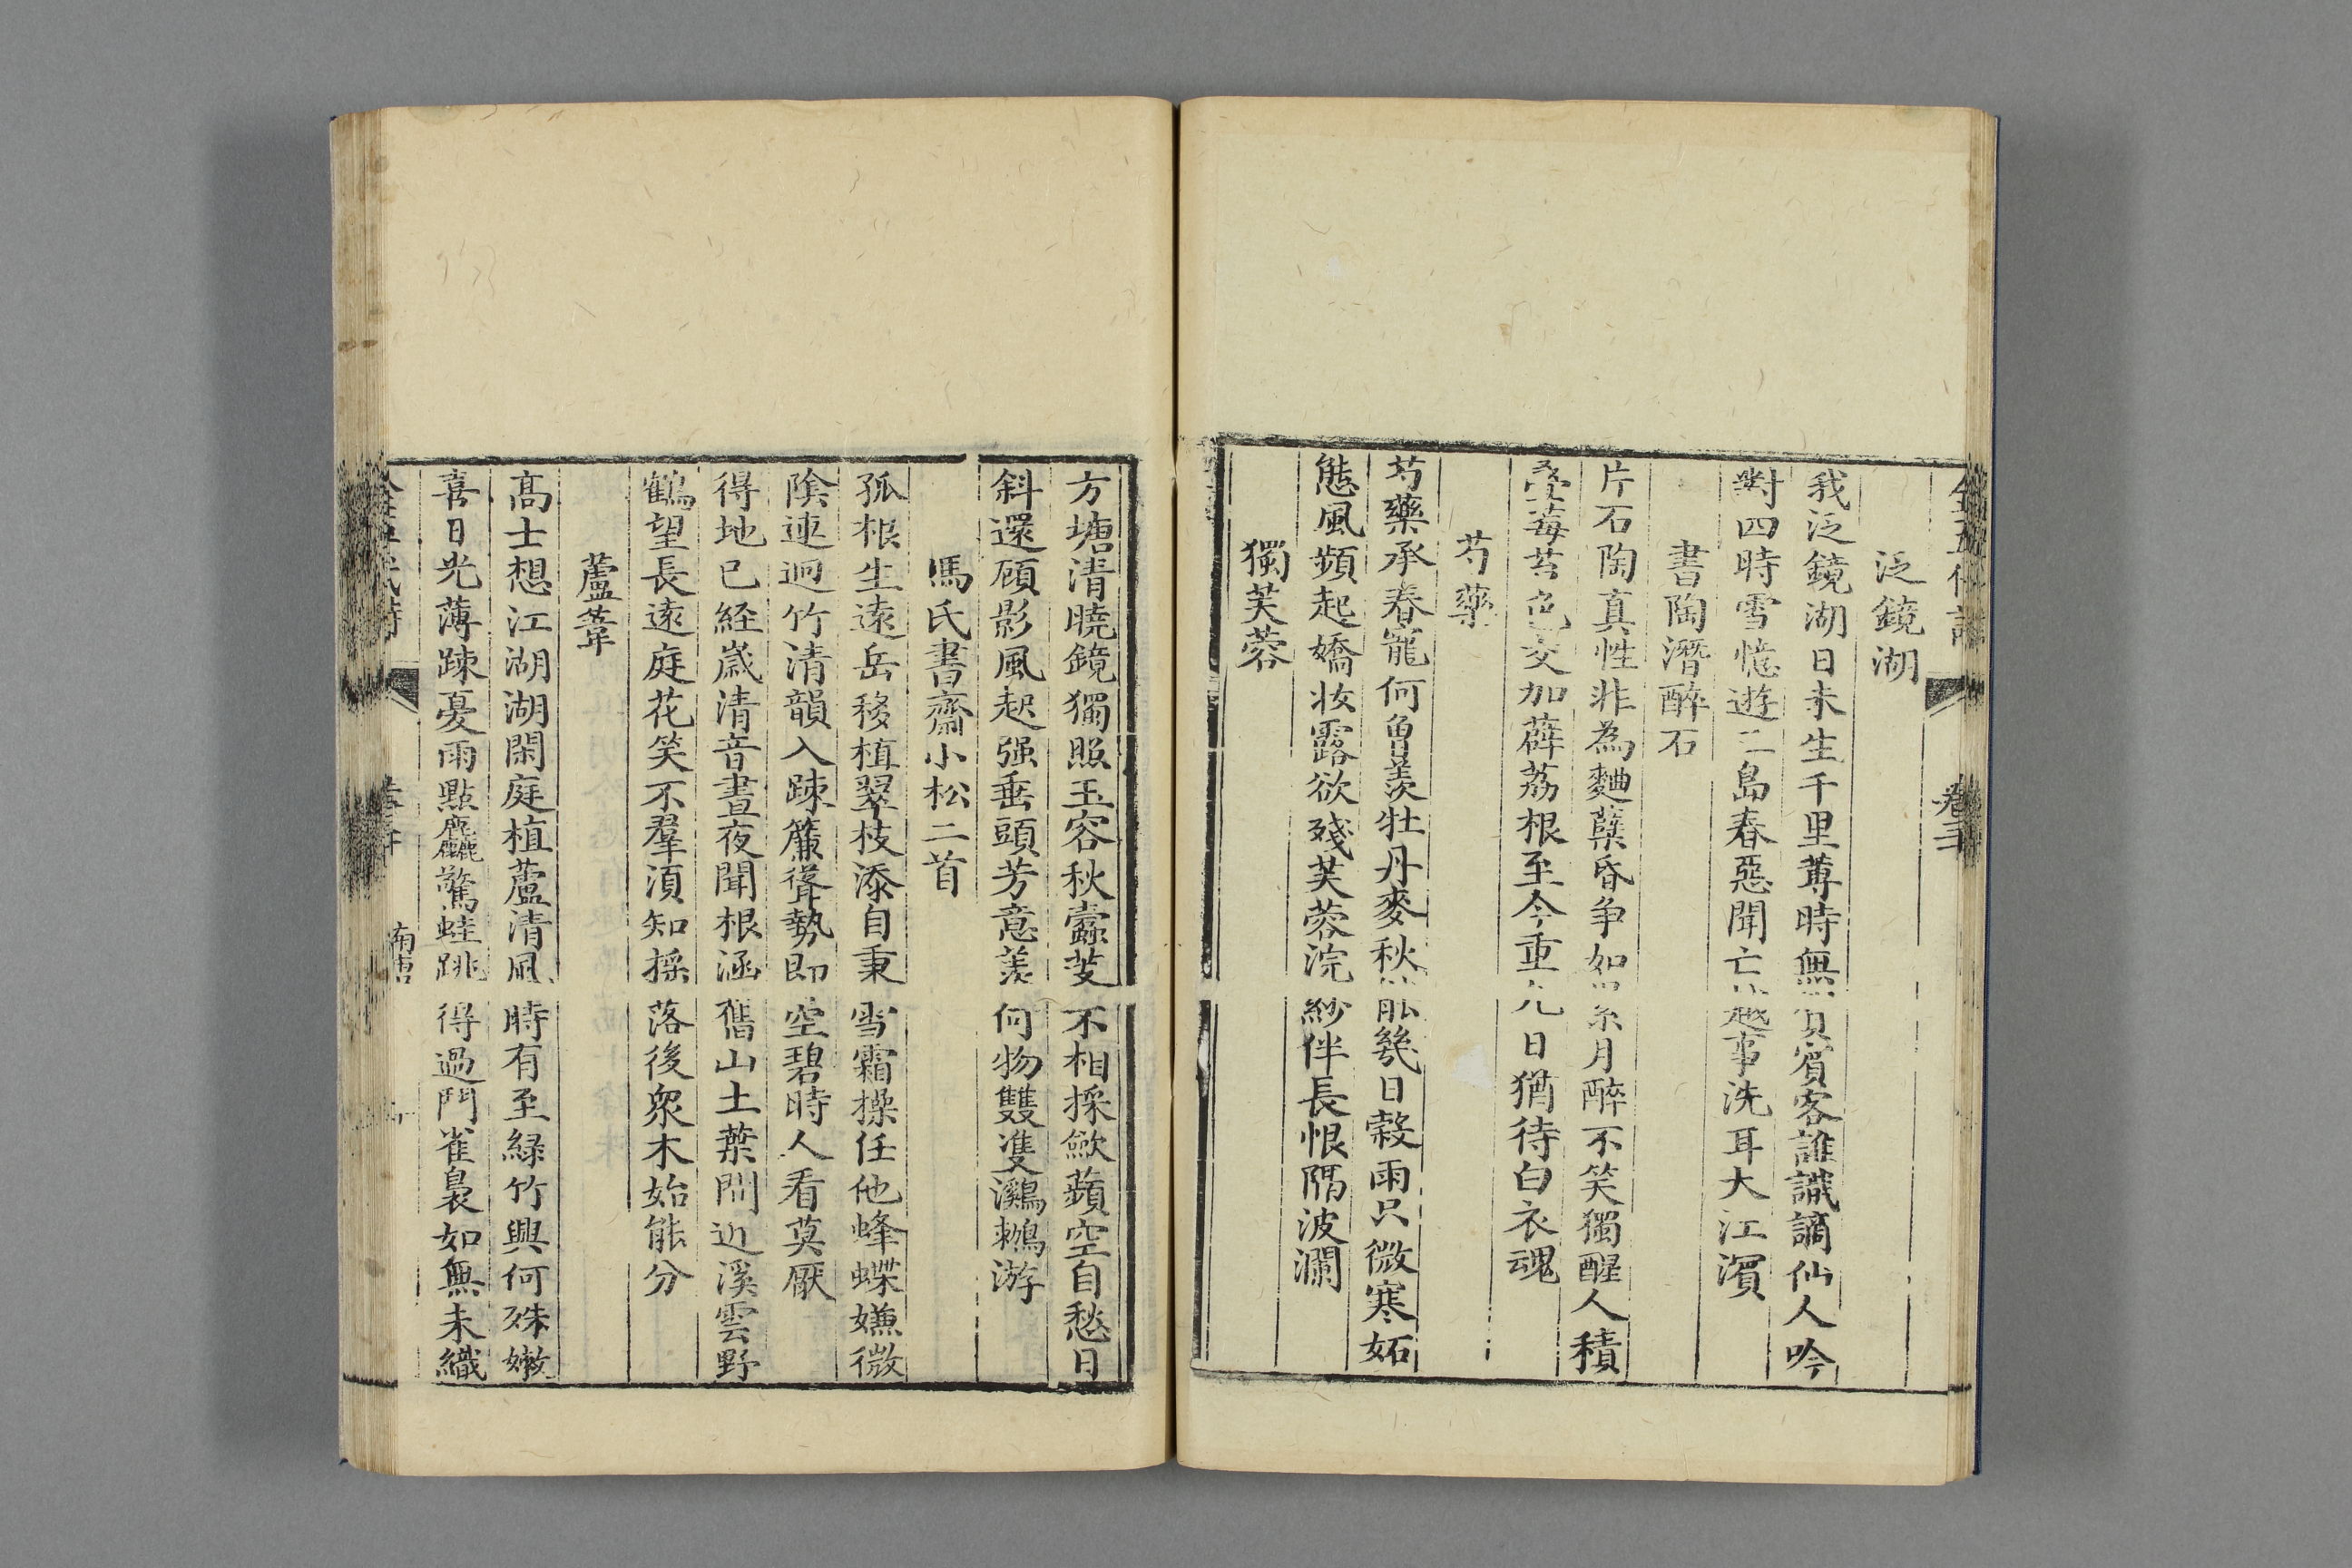 泛鏡湖
我泛鏡湖日未生千里蓴時無賀賓客誰識謫仙人吟
對四時雪憶遊二島春惡聞亡越事洗耳大江濱
書陶潛醉石
片石陶真性非為麯蘖昏争如累月醉不笑獨醒人積
疊莓苔色交加薜荔根至今重九日猶待白衣魂
芍藥
芍藥承春寵何曾羨牡丹麥秋能幾日穀雨只微寒妬
態風頻起嬌妝露欲殘芙蓉浣紗伴長恨隔波瀾
獨芙蓉
方塘清曉鏡獨照玉容秋蠹芰不相採歛蘋空自愁日
斜還顧影風起强垂頭芳意羨何物雙雙鸂鶒游
馬氏書齋小松二首
孤根生遠岳移植翠枝添自秉雪霜操任他蜂蝶嫌微
隂連迥竹清韻入踈簾聳勢即空碧時人看莫厭
得地已経歲清音晝夜聞根涵舊山土葉間近溪雲野
鶴望長遠庭花笑不羣須知揺落後衆木始能分
蘆葦
髙士想江湖湖閑庭植蘆清風時有至緑竹興何殊嫩
喜日光薄踈憂雨點麤驚蛙跳得過鬥雀裊如無未織